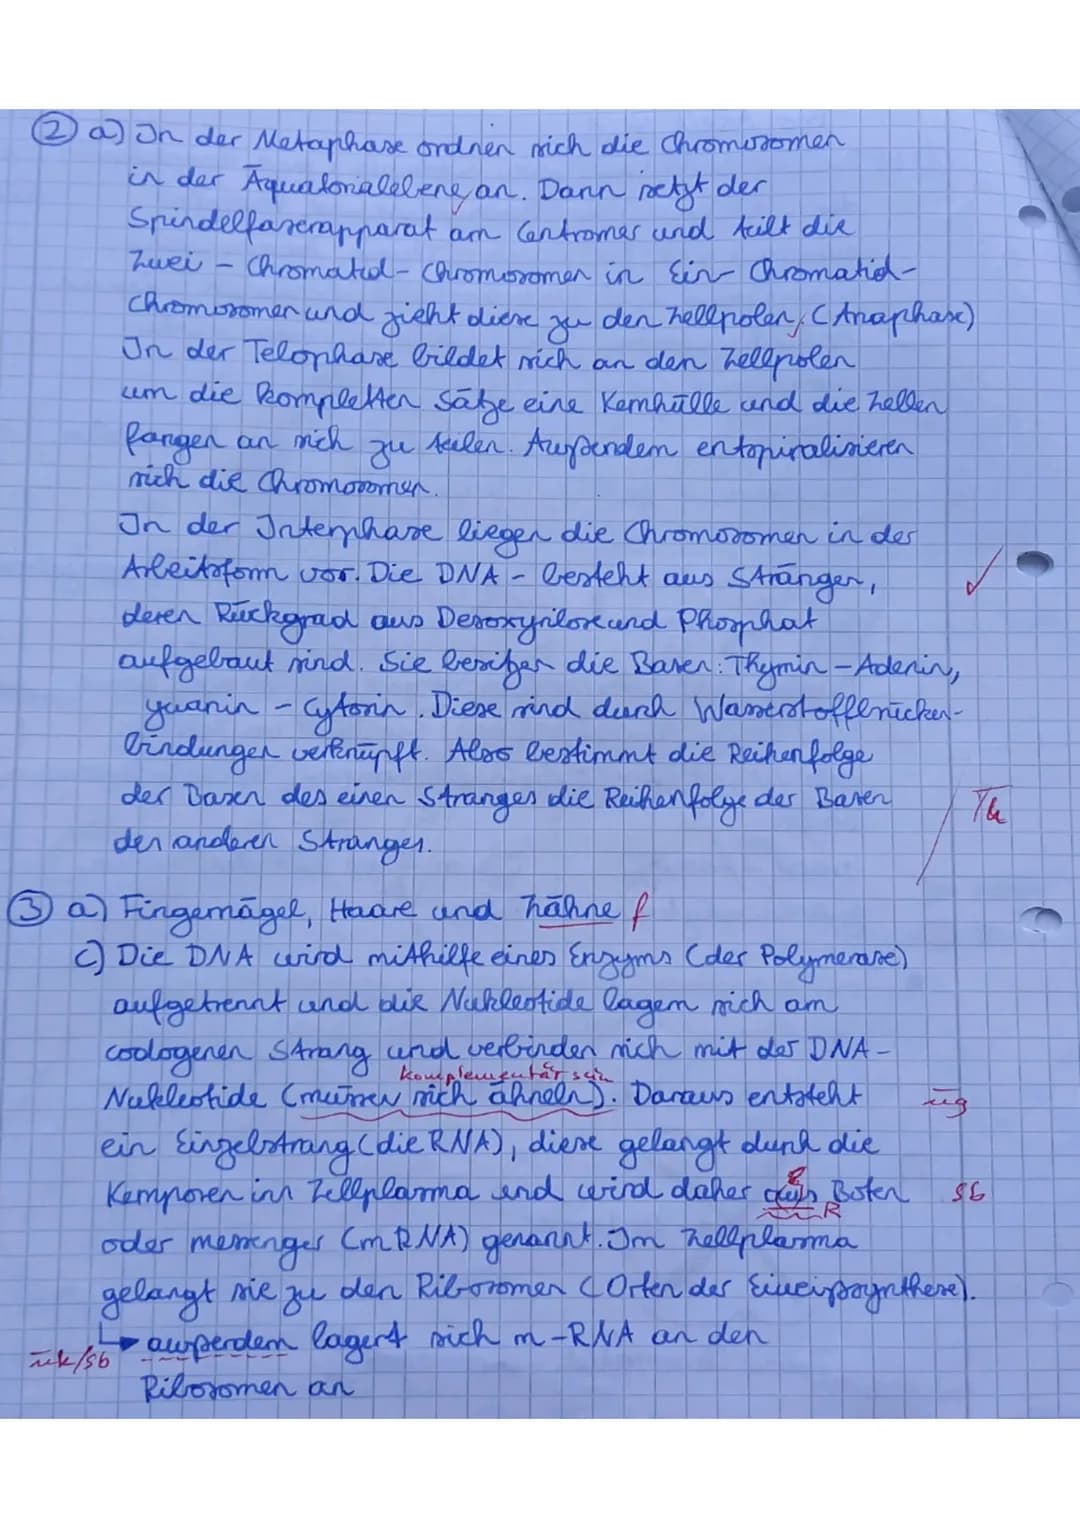 ② a) In der Metaphase ordnen sich die Chromosomen
in der Äquatorialebene an. Dann setzt der
Spindelfaserapparat am Centromer und teilt die
Zwei - Chromatid - Chromosomen in Ein - Chromatid -
Chromosomen und zieht diese zu den Zellpolen, (Anaphase)
In der Telophase bildet sich an den Zellpolen
um die kompletten Sätze eine Kernhülle und die Zellen
fangen an sich zu teilen. Außerdem entspiralisieren
sich die Chromosomen.
In der Interphase liegen die Chromosomen in der
Arbeitsform vor. Die DNA - besteht aus Strängen, ✓
deren Rückgrad aus Desoxyribose und Phosphat
aufgebaut sind. Sie besitzen die Basen: Thymin - Adenin,
Guanin - Cytosin. Diese sind durch Wasserstoffbrücken-
bindungen verknüpft. Also bestimmt die Reihenfolge
der Basen des einen Stranges die Reihenfolge der Basen
des anderen Stranges.
③ a) Fingernägel, Haare und Zähne f
c) Die DNA wird mithilfe eines Enzyms (der Polymerase)
aufgetrennt und die Nukleotide lagern sich am
codogenen Strang und verbinden sich mit der DNA -
komplementär sein
Nukleotide (müssen sich ähneln). Daraus entsteht ug
ein Einzelstrang (die RNA), diese gelangt durch die
Kernporen ins Zellplasma und wird daher Boten sb
R
oder messenger (mRNA) genannt. Im Zellplasma
gelangt sie zu den Ribosomen (Orten der Eiweißsynthese).
außerdem lagert sich m-RNA an den
Ribosomen an